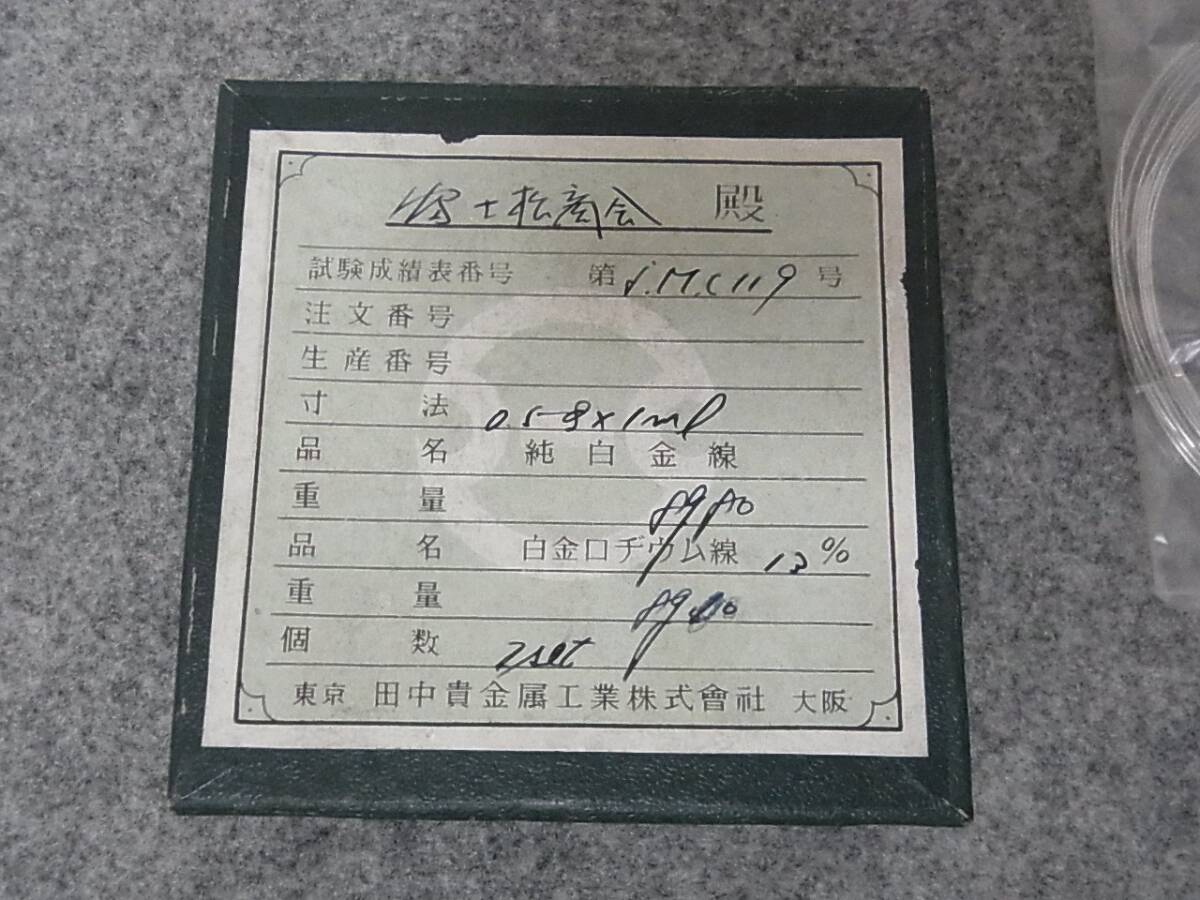 富士松商会 殿
試験成績表番号 第 J.M.C 119 号
注文番号
生産番号
寸法 0.5
品名 純白金線
重量
品名 白金ロヂウム線 13 %
重量
個数 2set
東京 田中貴金属工業株式會社 大阪